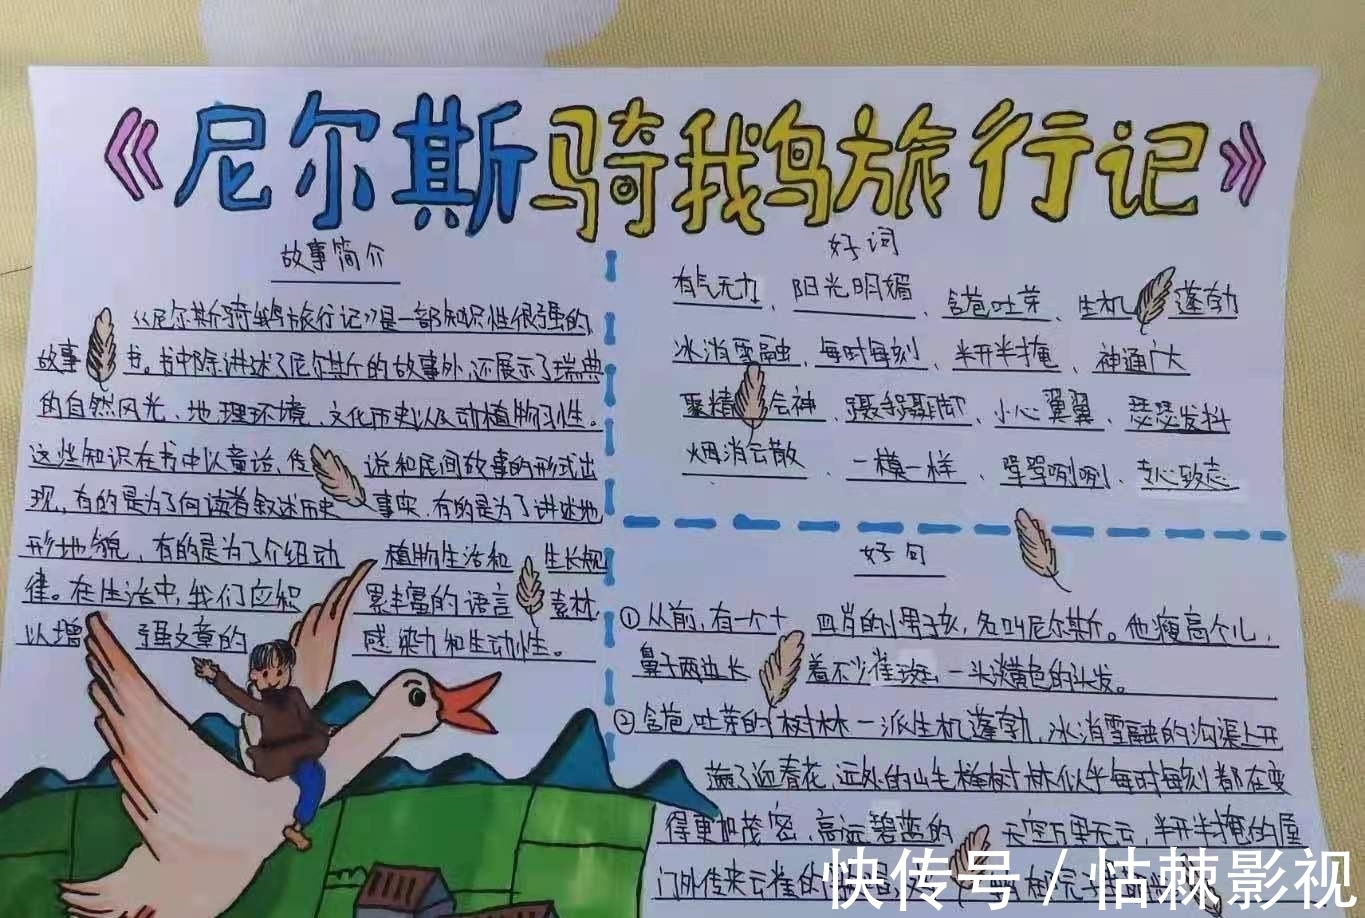 《尼尔斯骑鹅旅行记》
故事简介
《尼尔斯骑鹅旅行记》是一部知识性很强的
故事书。书中除讲述了尼尔斯的故事外,还展示了瑞典
的自然风光、地理环境、文化历史以及动植物习性。
这些知识在书中以童话、传说和民间故事的形式出
现,有的是为了向读者叙述历史事实,有的是为了讲述地
形地貌,有的是为了介绍动植物生活和生长规
律。在生活中,我们应积累丰富的语言素材,
以增强文章的感染力和生动性。
好词
有气无力、阳光明媚、含苞吐芽、生机蓬勃
冰消雪融、每时每刻、半开半掩、神通广大
聚精会神、蹑手蹑脚、小心翼翼、瑟瑟发抖
烟消云散、一模一样、骂骂咧咧、专心致志
好句
①从前,有一个十四岁的小男孩,名叫尼尔斯。他瘦高个儿,
鼻子两边长着不少雀斑,一头淡黄色的头发。
②含苞吐芽的树林一派生机蓬勃,冰消雪融的沟渠上开
满了迎春花,远处的山毛榉树林似乎每时每刻都在变
得更加茂密,高远碧蓝的天空万里无云,半开半掩的屋
门外传来云雀的
快传号 / 怙棘影视